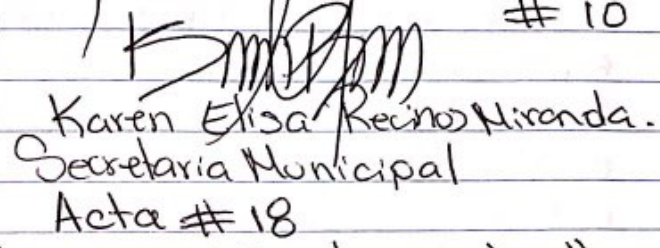 # 10
Karen Elisa Recinos Miranda.
Secretaria Municipal
Acta # 18